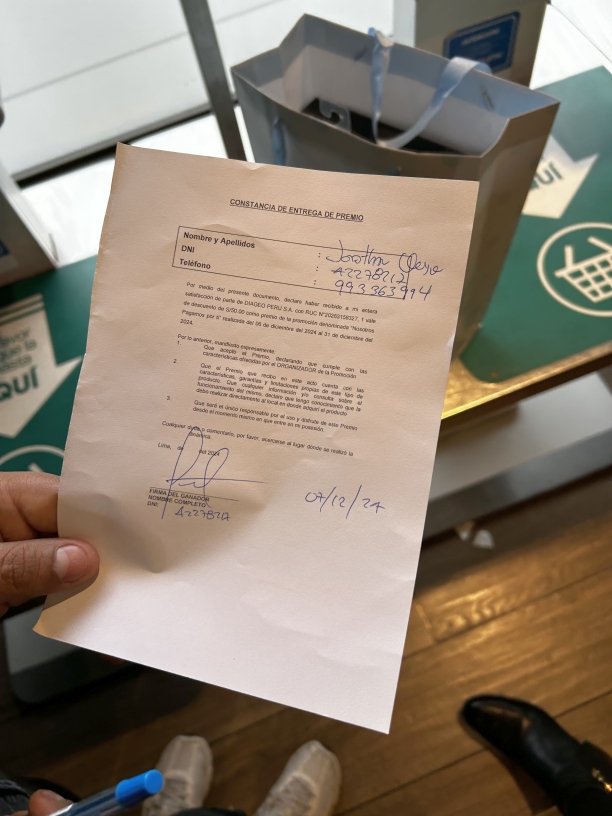 CONSTANCIA DE ENTREGA DE PREMIO
Nombre y Apellidos :
DNI : A2278212
Teléfono : 993363994
Por medio del presente documento, declaro haber recibido a mi entera
satisfacción de parte de DIAGEO PERU S.A. con RUC 1 vale
de descuento de S/50.00 como premio de la promoción denominada "Nosotros
Pagamos por ti" realizada del 05 de diciembre del 2024 al 31 de diciembre del
2024.
Por lo anterior, manifiesto expresamente:
1. Que acepto el Premio, declarando que cumple con las
características ofrecidas por el ORGANIZADOR de la Promoción
2. Que el Premio que recibo en este acto cuenta con las
características, garantías y limitaciones propias de este tipo de
producto. Que cualquier información y/o consulta sobre el
funcionamiento del mismo, declaro que tengo conocimiento que la
debo realizar directamente al local en donde adquirí el producto
3. Que seré el único responsable por el uso y disfrute de este Premio
desde el momento mismo en que entre en mi posesión.
Cualquier duda o comentario, por favor, acercarse al lugar donde se realizó la
dinámica.
Lima, de del 2024
FIRMA DEL GANADOR
NOMBRE COMPLETO
DNI:
07/12/24
AQUÍ
QUÍ